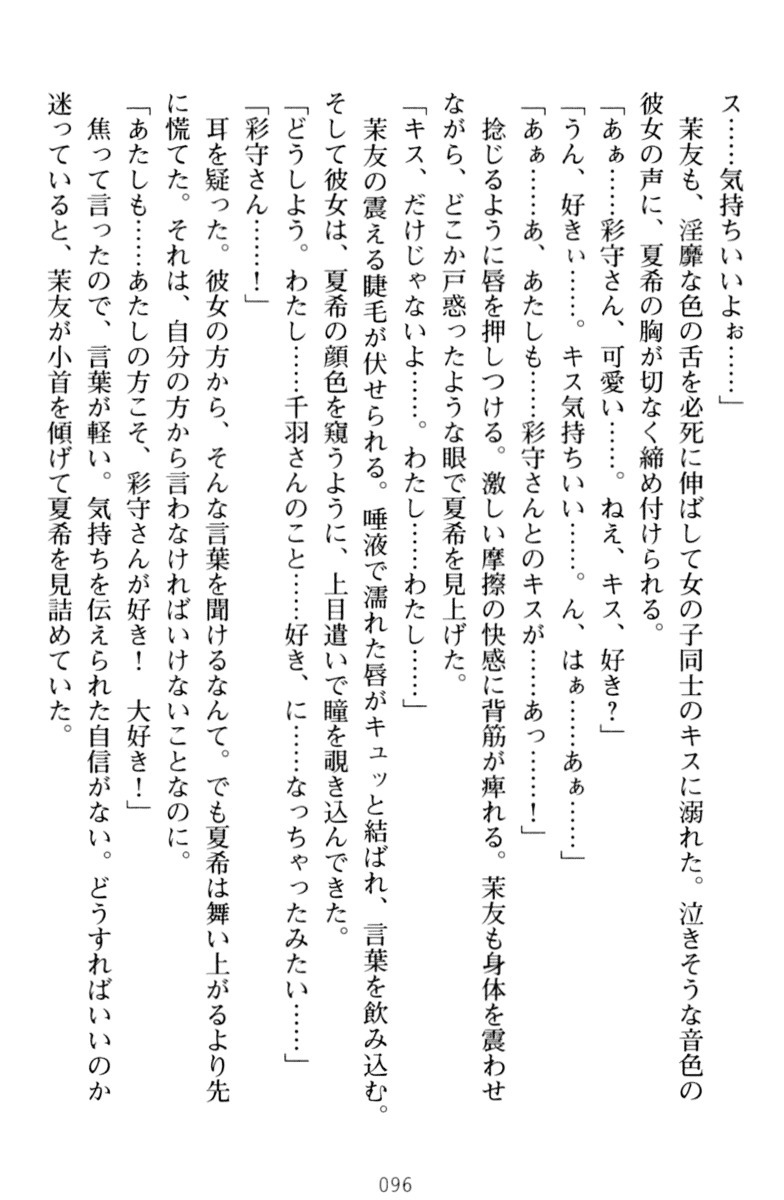 ス……気持ちいいよぉ……」
　茉友も、淫靡な色の舌を必死に伸ばして女の子同士のキスに溺れた。泣きそうな音色の
彼女の声に、夏希の胸が切なく締め付けられる。
「あぁ……彩守さん、可愛い……。ねえ、キス、好き？」
「うん、好きぃ……。キス気持ちいい……。ん、はぁ……あぁ……」
「あぁ……あ、あたしも……彩守さんとのキスが……あっ……！」
　捻じるように唇を押しつける。激しい摩擦の快感に背筋が痺れる。茉友も身体を震わせ
ながら、どこか戸惑ったような眼で夏希を見上げた。
「キス、だけじゃないよ……。わたし……わたし……」
　茉友の震える睫毛が伏せられる。唾液で濡れた唇がキュッと結ばれ、言葉を飲み込む。
そして彼女は、夏希の顔色を窺うように、上目遣いで瞳を覗き込んできた。
「どうしよう。わたし……千羽さんのこと……好き、に……なっちゃったみたい……」
「彩守さん……！」
　耳を疑った。彼女の方から、そんな言葉を聞けるなんて。でも夏希は舞い上がるより先
に慌てた。それは、自分の方から言わなければいけないことなのに。
「あたしも……あたしの方こそ、彩守さんが好き！　大好き！」
　焦って言ったので、言葉が軽い。気持ちを伝えられた自信がない。どうすればいいのか
迷っていると、茉友が小首を傾げて夏希を見詰めていた。
096